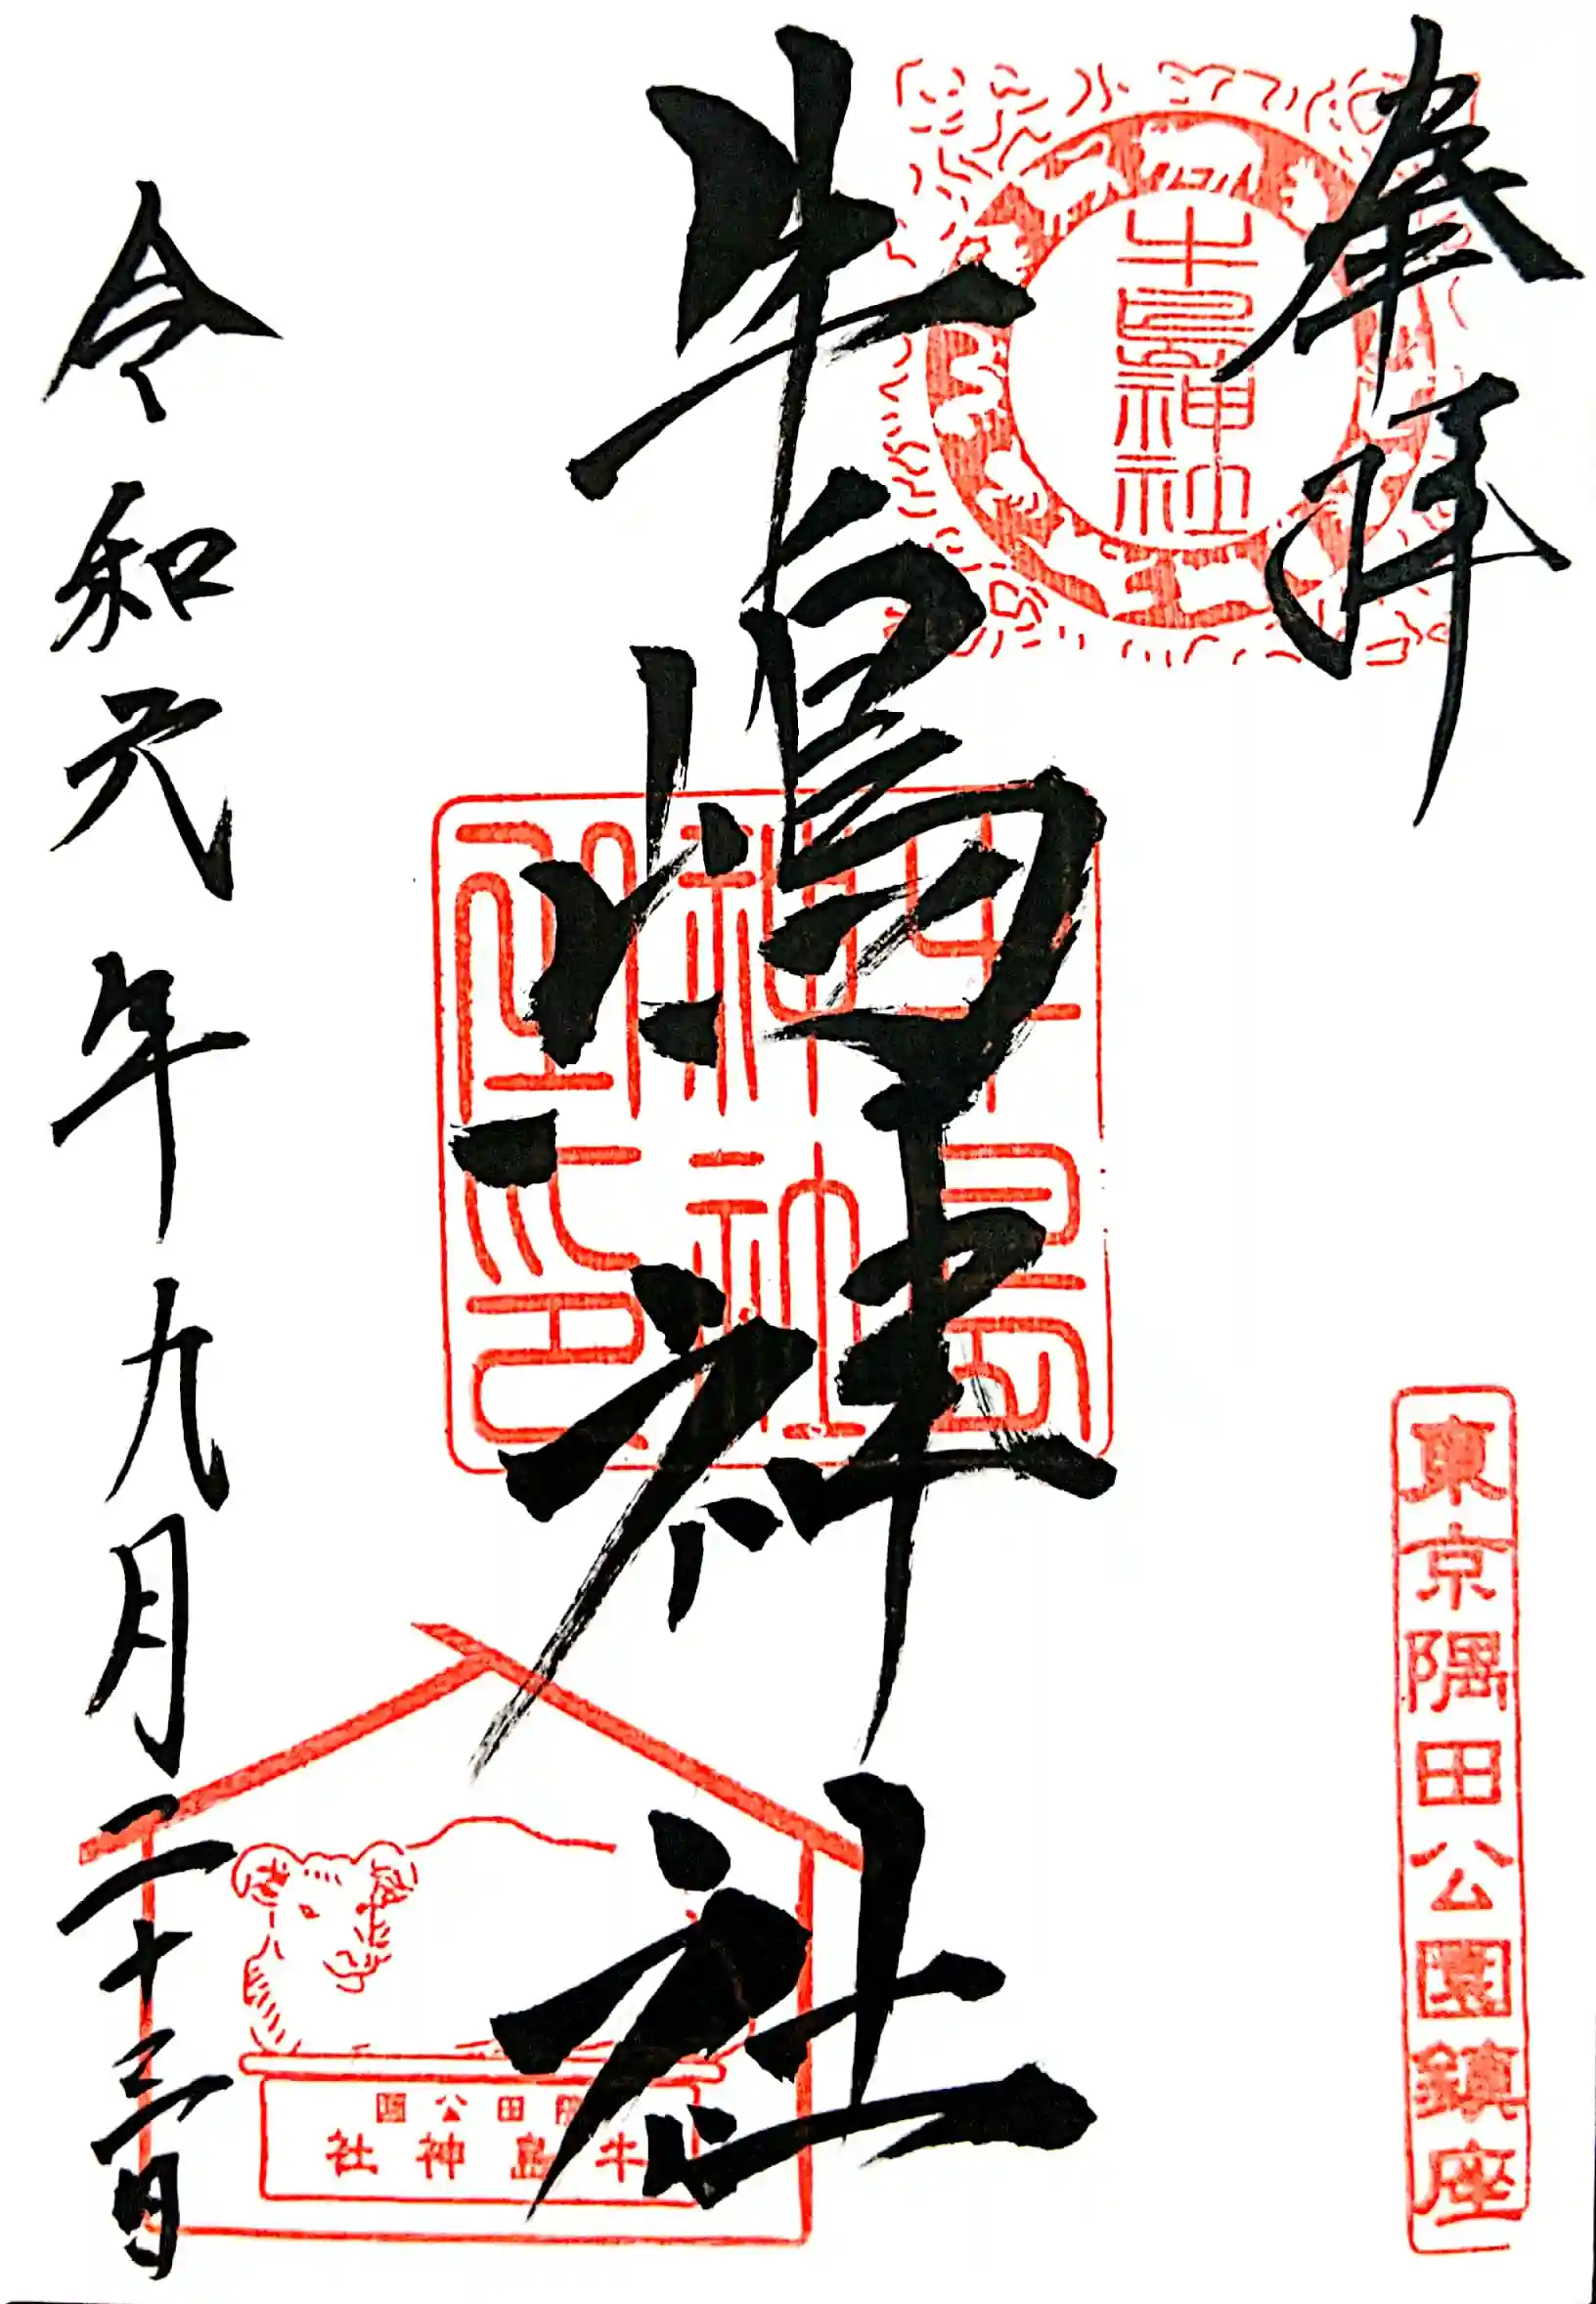 奉拝
牛島神社
東京隅田公園鎮座
牛嶋神社
牛島
神社
之印
隅田公園
牛島神社
令和元年九月二十三日